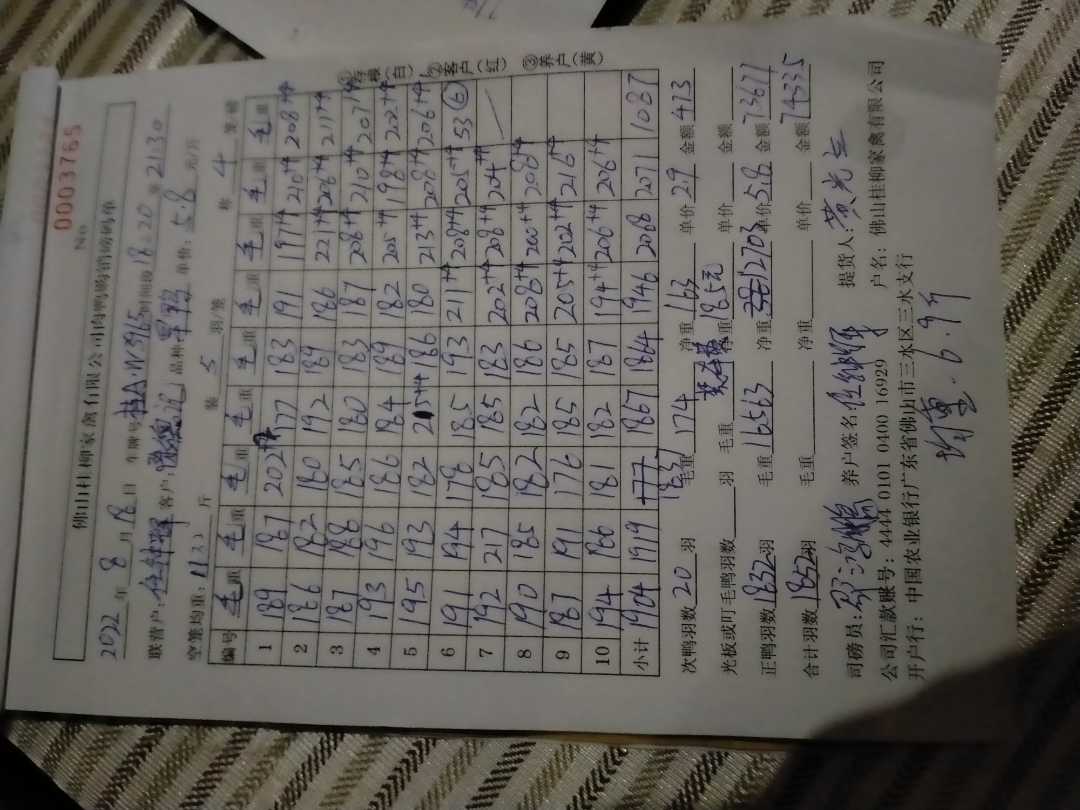 佛山桂柳家禽有限公司肉鸭畅销磅码单
No 0003765
2022年8月18日 车牌号 时间 18:20 至 2130
联营户: 客户: 品种: 单价: 5.8 元/斤
空笼均重: 11(2) 斤 装 5 羽/笼 称 4 笼/磅
编号 毛重 毛重 毛重 毛重 毛重 毛重 毛重 毛重 毛重
1 189 187 202 177 183 191 197+4 210+4 208+4
2 186 182 180 192 189 186 221+4 206+4 211+4
3 187 188 185 180 183 187 208+4 210+4 207+4
4 193 196 186 184 189 182 205+4 198+4 202+4
5 195 193 182 215+4 186 180 213+4 208+4 206+4
6 191 194 178 185 193 211+4 208+4 205+4 53(6)
7 192 217 185 185 183 202+4 208+4 204+4
8 190 185 182 182 186 208+4 200+4 208+4
9 187 191 176 185 185 205+4 202+4 216+4
10 194 186 181 182 187 194+4 206+4 206+4
小计 1904 1919 1837 1867 1864 1946 2068 2071 1087
次鸭羽数 20 羽 毛重 174 净重 163 单价 2.9 金额 473
光板或叮毛鸭羽数 羽 毛重 净重 185元 单价 金额
正鸭羽数 1832 羽 毛重 16563 净重 12703 单价 5.8 金额 73677
合计羽数 1852 羽 毛重 净重 单价 金额 74335
司磅员: 养户签名 提货人: 黄光
公司汇款账号: 4444 0101 0400 16929 户名: 佛山桂柳家禽有限公司
开户行: 中国农业银行广东省佛山市三水区三水支行
均重. 6.9斤
①存根(白) ②客户(红) ③养户(黄)